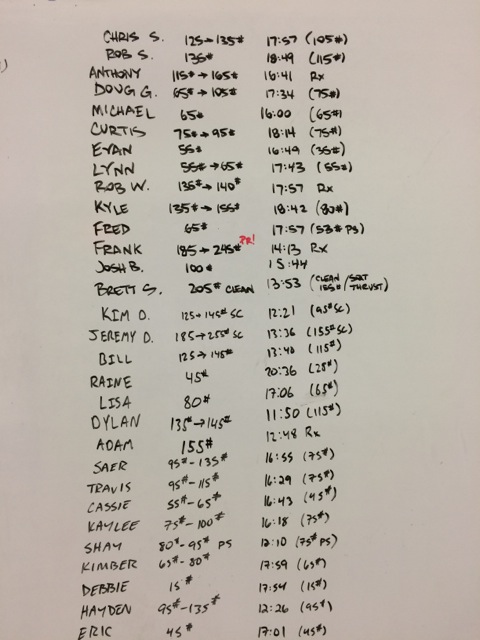 CHRIS S. 125→135# 17:57 (105#)
ROB S. 135# 18:49 (115#)
ANTHONY 115#→165# 16:41 Rx
DOUG G. 65#→105# 17:34 (75#)
MICHAEL 65# 16:00 (65#)
CURTIS 75#→95# 18:14 (75#)
EVAN 55# 16:49 (35#)
LYNN 55#→65# 17:43 (55#)
ROB W. 135#→140# 17:57 Rx
KYLE 135#→155# 18:42 (80#)
FRED 65# 17:57 (53# PS)
FRANK 185→245# PR! 14:13 Rx
JOSH B. 100# 15:44
BRETT S. 205# CLEAN 13:53 (CLEAN 155#/ THRUST)
KIM D. 125→145# SC 12:21 (95# SC)
JEREMY D. 185→255# SC 13:36 (155# SC)
BILL 125→145# 13:40 (115#)
RAINE 45# 20:36 (25#)
LISA 80# 17:06 (65#)
DYLAN 135#→145# 11:50 (115#)
ADAM 155# 12:48 Rx
SAER 95#-135# 16:55 (75#)
TRAVIS 95#-115# 16:29 (75#)
CASSIE 55#-65# 16:43 (45#)
KAYLEE 75#-100# 16:18 (75#)
SHAY 80#-95# PS 12:10 (75# PS)
KIMBER 65#-80# 17:59 (65#)
DEBBIE 15# 17:54 (15#)
HAYDEN 95#-135# 12:26 (95#)
ERIC 45# 17:01 (45#)